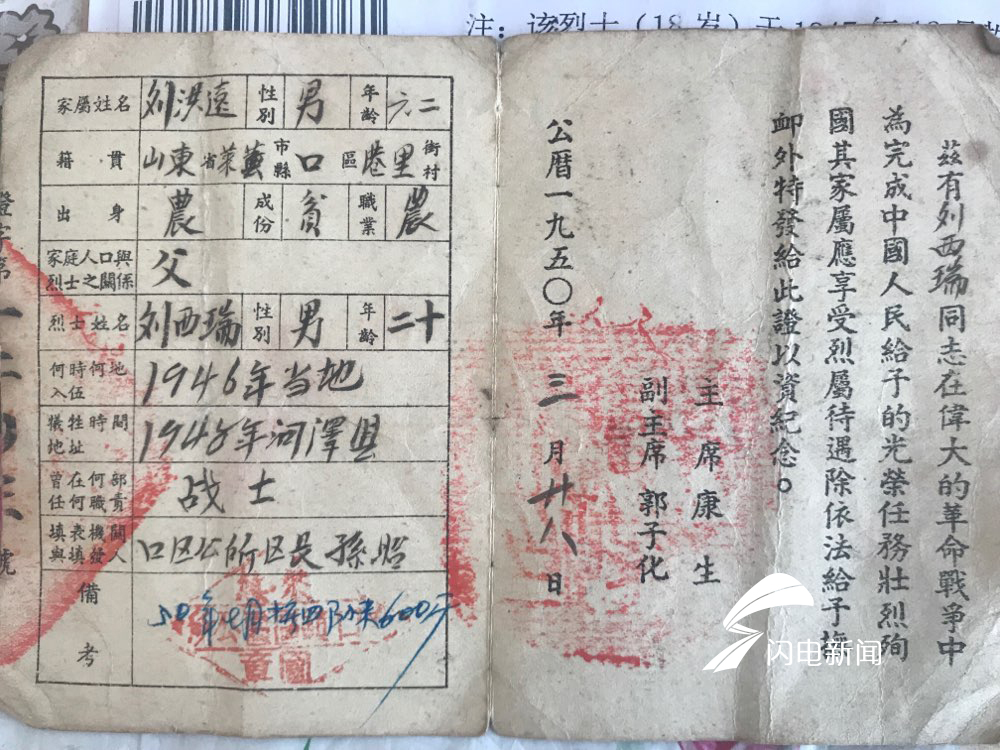 注：该烈士（18岁）于1947年10月
家屬姓名 刘洪遠 性別 男 年齡 六二
籍貫 山東省萊蕪市縣 口區 港里街村
出身 農 成份 貧 職業 農
家庭人口與烈士之關係 父
烈士姓名 刘西瑞 性別 男 年齡 二十
何時何地入伍 1946年当地
犧牲時間地址 1948年河澤县
曾在何部任何職責 战士
填表機關與填發人 口区公所区長孫
備考 50年
茲有刘西瑞同志在偉大的革命戰爭中
為完成中國人民給予的光榮任務壯烈殉
國其家屬應享受烈屬待遇除依法給予撫
卹外特發給此證以資紀念。
主席 康生
副主席 郭子化
公曆一九五〇年三月廿八日
證字第
號
闪电新闻